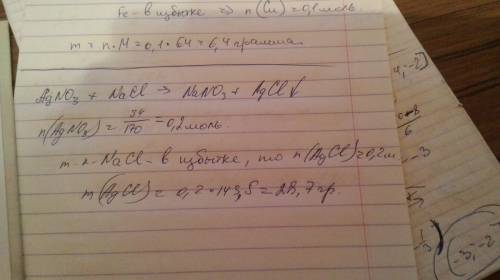 Fe - в избытке => n(Cu) = 0,1 моль.
m = n·M = 0,1·64 = 6,4 грамма.
AgNO3 + NaCl → NaNO3 + AgCl↓
n(AgNO3) = 34/170 = 0,2 моль.
т.к. NaCl - в избытке, то n(AgCl) = 0,2 м
m(AgCl) = 0,2·143,5 = 28,7 гр.